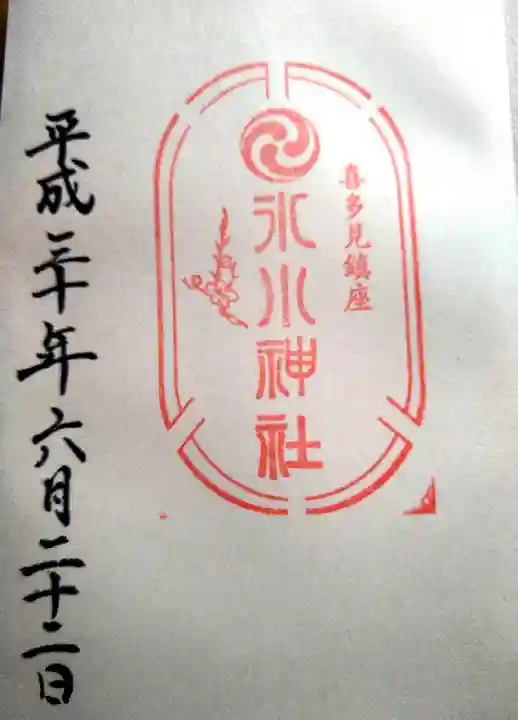 喜多見鎮座
氷川神社
平成三十年六月二十二日